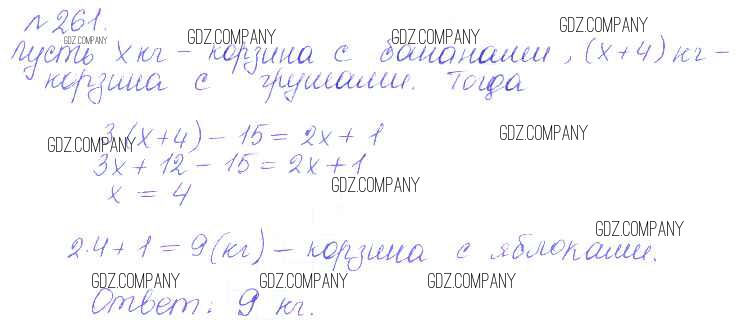 №261.
GDZ.COMPANY GDZ.COMPANY GDZ.COMPANY GDZ.COMPANY
Пусть х кг - корзина с бананами, (х+4) кг -
корзина с грушами. Тогда
3(х+4) - 15 = 2х + 1
GDZ.COMPANY GDZ.COMPANY
3х + 12 - 15 = 2х + 1
х = 4
GDZ.COMPANY
GDZ.COMPANY
2·4 + 1 = 9 (кг) - корзина с яблоками.
GDZ.COMPANY GDZ.COMPANY GDZ.COMPANY
Ответ: 9 кг.